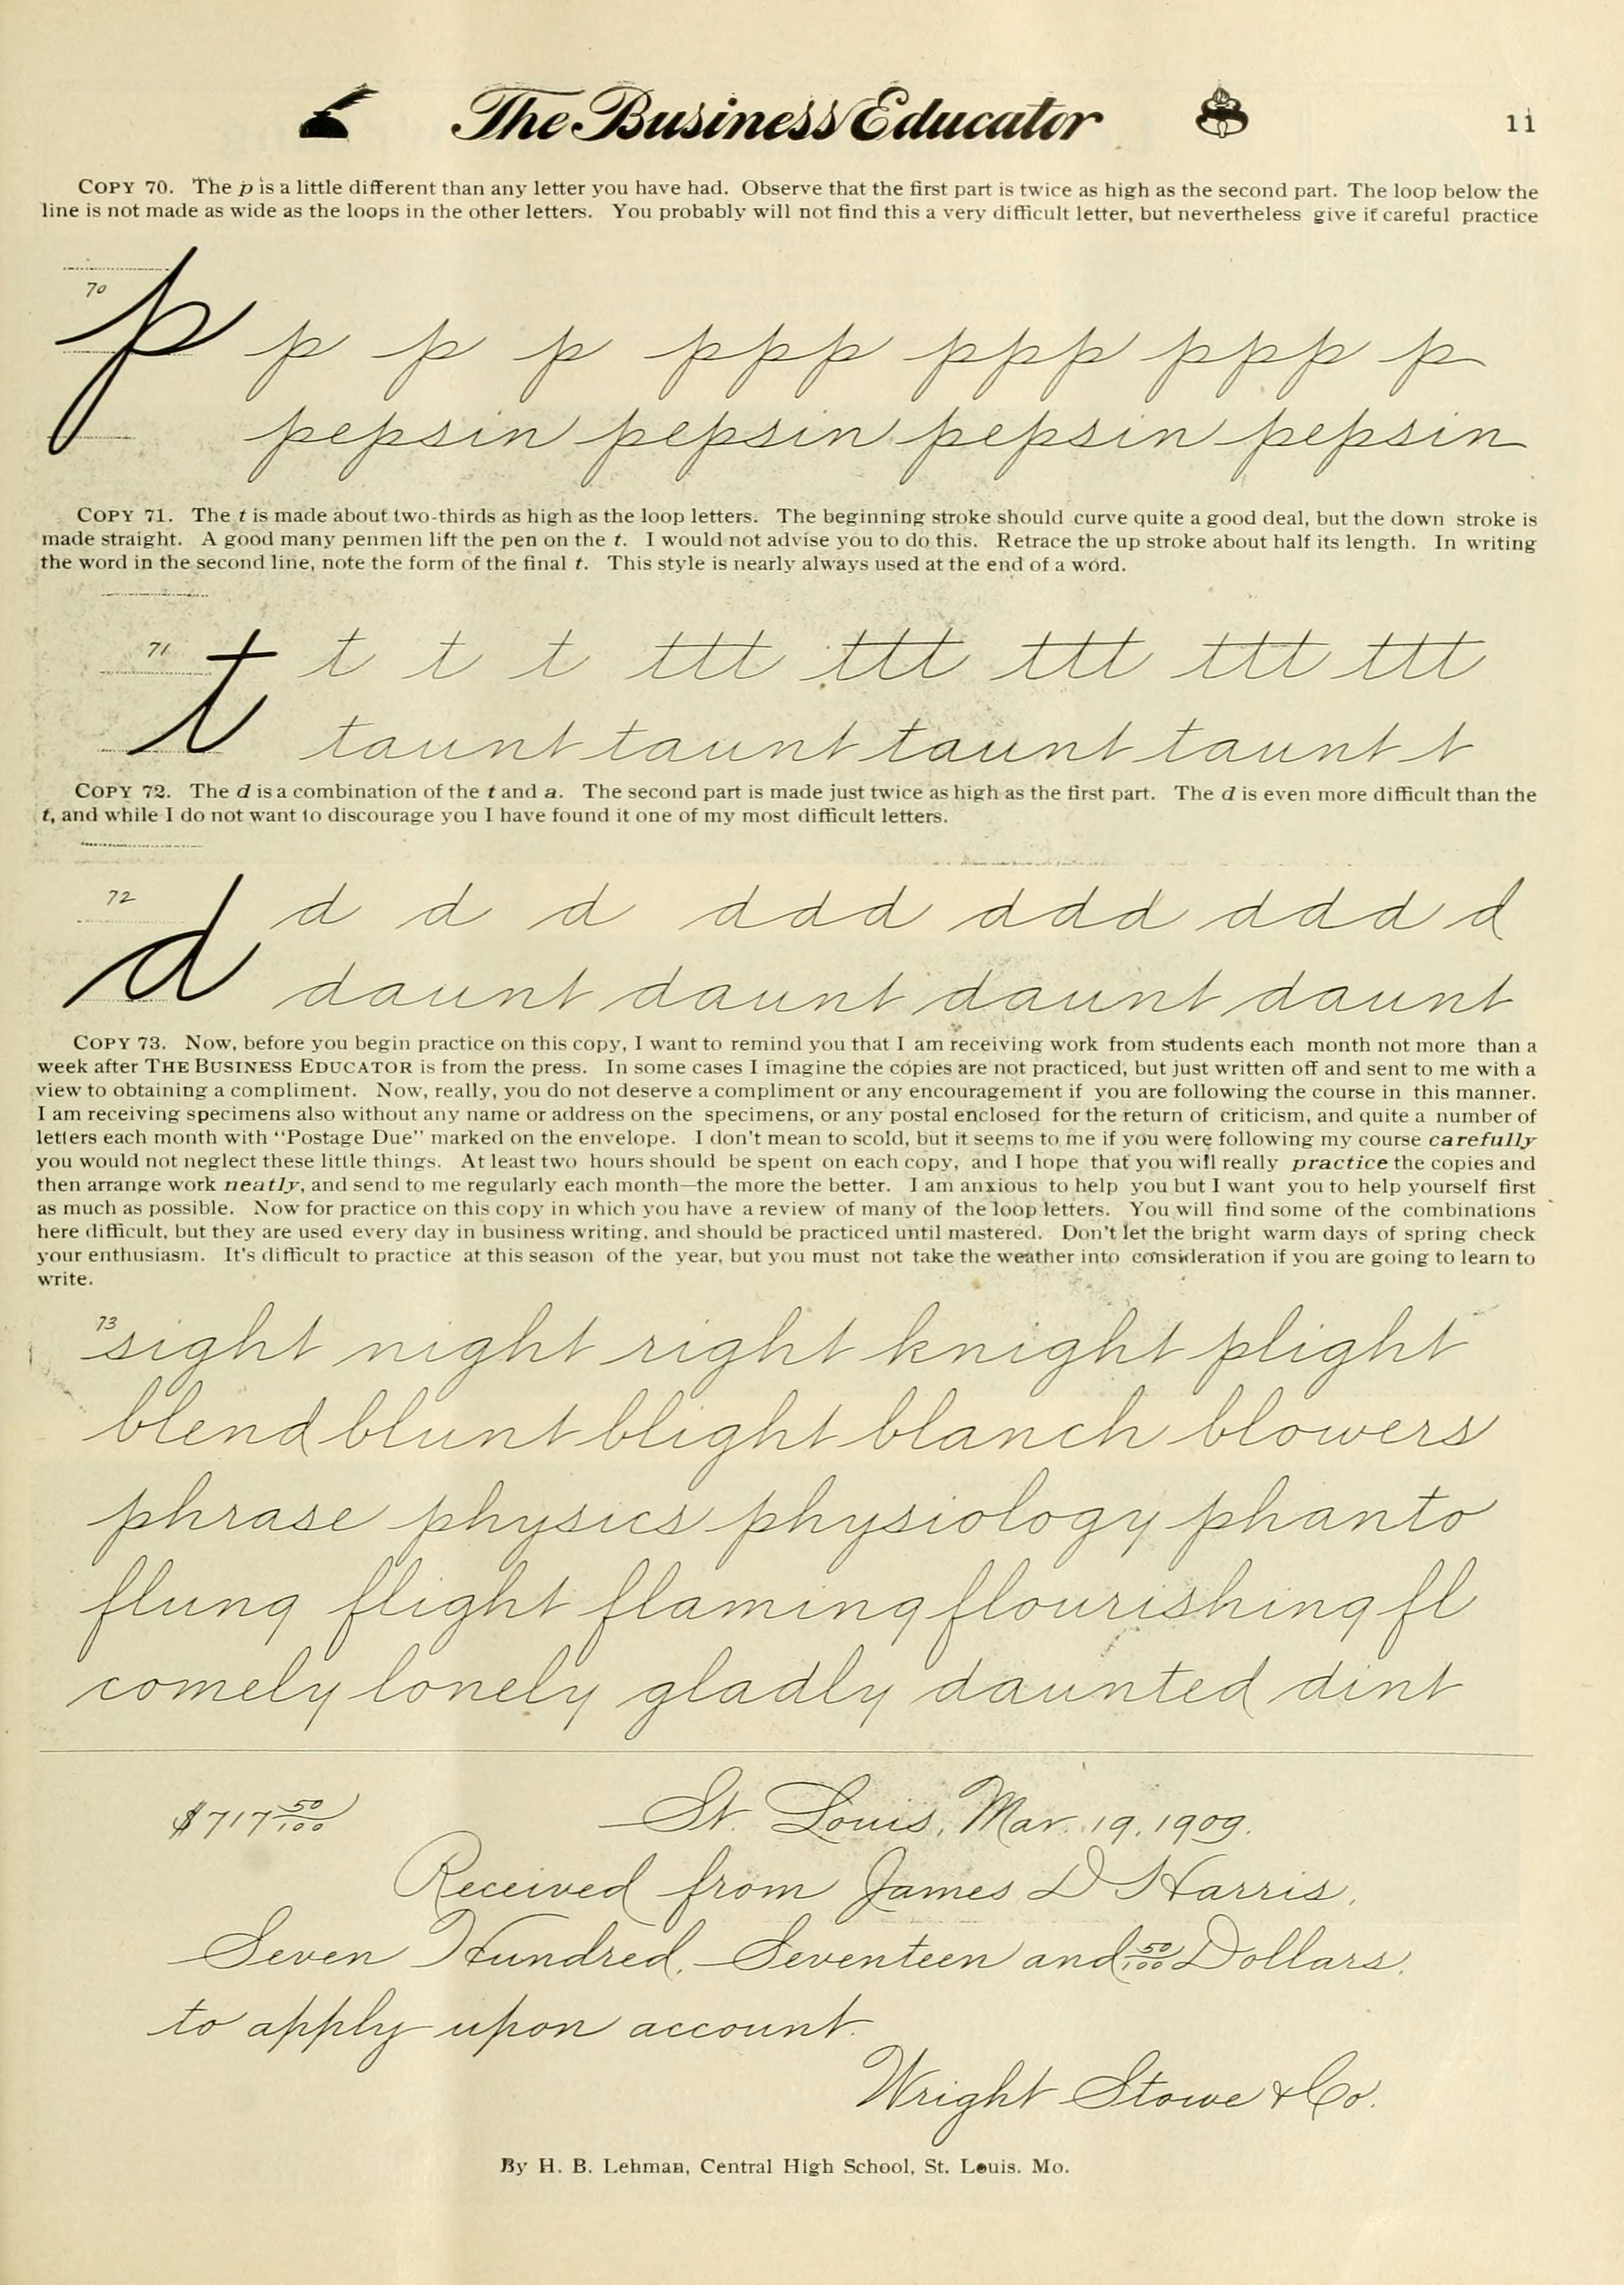 The Business Educator 11
COPY 70. The p is a little different than any letter you have had. Observe that the first part is twice as high as the second part. The loop below the
line is not made as wide as the loops in the other letters. You probably will not find this a very difficult letter, but nevertheless give it careful practice
70
p p p p ppp ppp ppp p
pepsin pepsin pepsin pepsin
COPY 71. The t is made about two-thirds as high as the loop letters. The beginning stroke should curve quite a good deal, but the down stroke is
made straight. A good many penmen lift the pen on the t. I would not advise you to do this. Retrace the up stroke about half its length. In writing
the word in the second line, note the form of the final t. This style is nearly always used at the end of a word.
71
t t t t ttt ttt ttt ttt ttt
taunt taunt taunt taunt t
COPY 72. The d is a combination of the t and a. The second part is made just twice as high as the first part. The d is even more difficult than the
t, and while I do not want to discourage you I have found it one of my most difficult letters.
72
d d d d ddd ddd ddd d
daunt daunt daunt daunt
COPY 73. Now, before you begin practice on this copy, I want to remind you that I am receiving work from students each month not more than a
week after THE BUSINESS EDUCATOR is from the press. In some cases I imagine the copies are not practiced, but just written off and sent to me with a
view to obtaining a compliment. Now, really, you do not deserve a compliment or any encouragement if you are following the course in this manner.
I am receiving specimens also without any name or address on the specimens, or any postal enclosed for the return of criticism, and quite a number of
letters each month with "Postage Due" marked on the envelope. I don't mean to scold, but it seems to me if you were following my course carefully
you would not neglect these little things. At least two hours should be spent on each copy, and I hope that you will really practice the copies and
then arrange work neatly, and send to me regularly each month—the more the better. I am anxious to help you but I want you to help yourself first
as much as possible. Now for practice on this copy in which you have a review of many of the loop letters. You will find some of the combinations
here difficult, but they are used every day in business writing, and should be practiced until mastered. Don't let the bright warm days of spring check
your enthusiasm. It's difficult to practice at this season of the year, but you must not take the weather into consideration if you are going to learn to
write.
73
sight night right knight plight
blend blunt blight blanch blowers
phrase physics physiology phanto
flung flight flaming flourishing fl
comely lonely gladly daunted dint
$717 50/100 St. Louis, Mar. 19, 1909.
Received from James D Harris,
Seven Hundred, Seventeen and 50/100 Dollars.
to apply upon account.
Wright Stowe & Co.
By H. B. Lehman, Central High School, St. Louis. Mo.